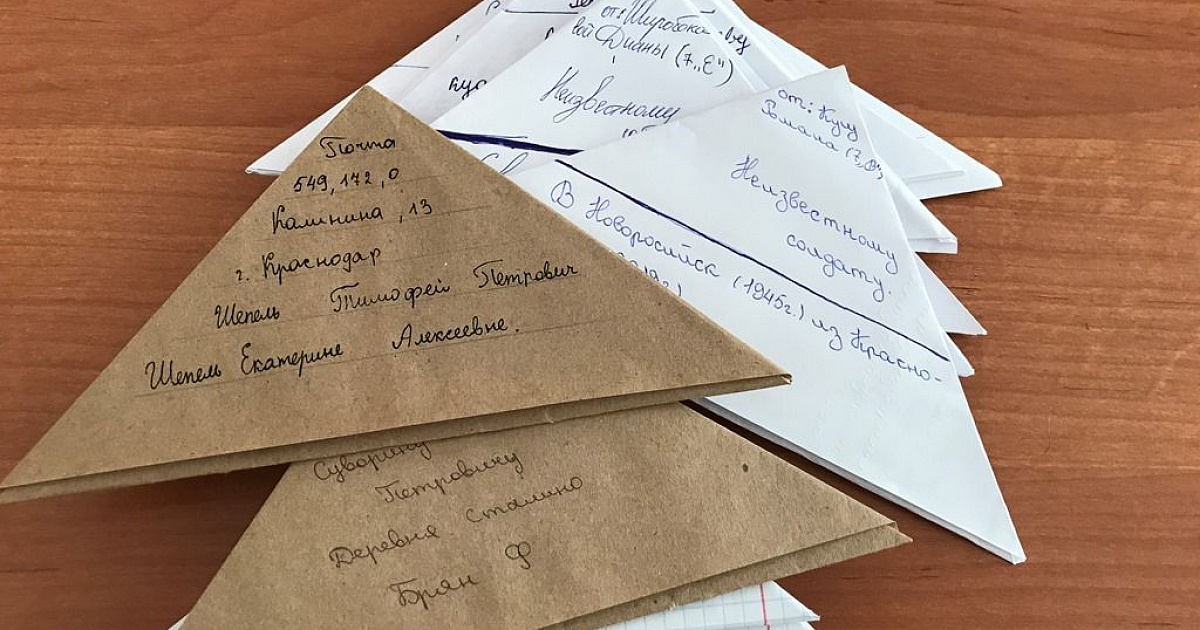 Почта
549,172,0
Калинина, 13
г. Краснодар
Шепель Тимофей Петрович
Шепель Екатерине Алексеевне.
Суворину
Петровичу
Деревня сталино
Брян Ф
от: Широбока
вой Дианы (7„Е")
Неизвестному
от: Кучу
Романа (7„В")
Неизвестному
солдату.
В Новоросийск (1945г.) из Красно-